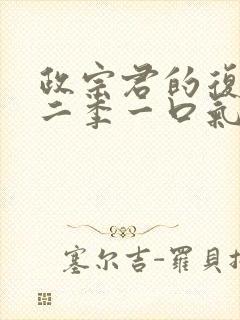 政宗君的復
二季一口氣
塞尔吉-羅貝托